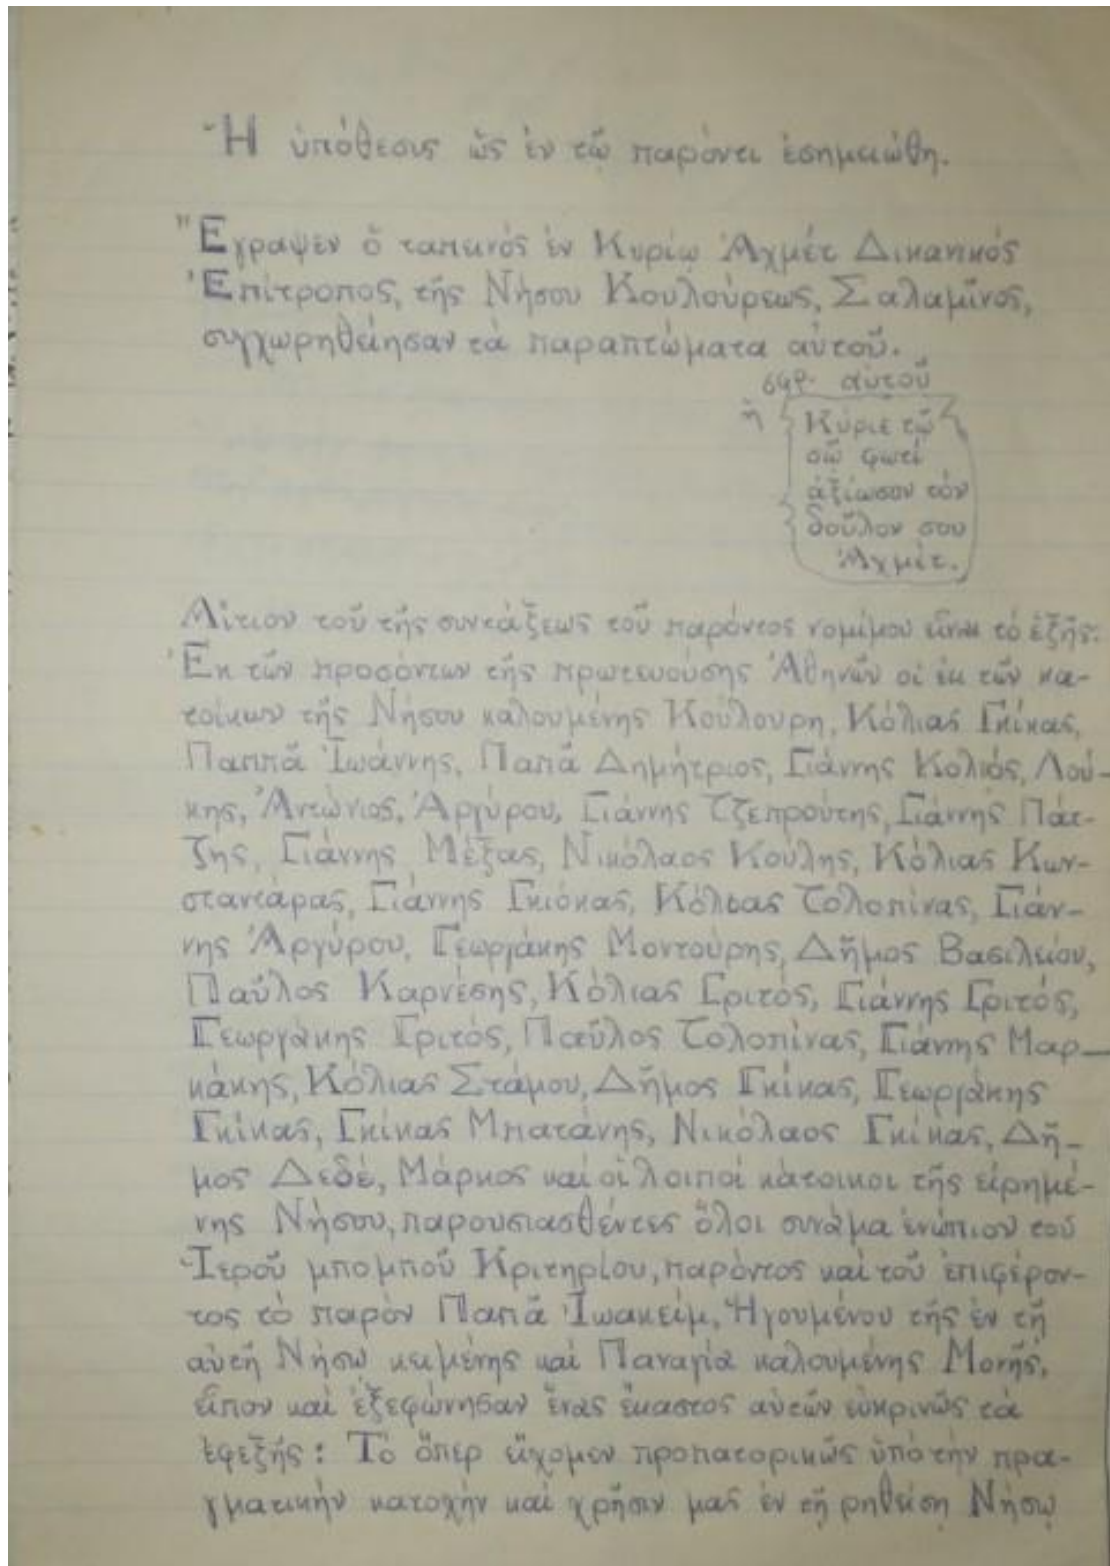 Ἡ ὑπόθεσις ὡς ἐν τῷ παρόντι ἐσημειώθη.
"Έγραψεν ὁ ταπεινός ἐν Κυρίῳ Ἀχμέτ Δικανικός
Ἐπίτροπος, τῆς Νήσου Κουλούρεως, Σαλαμῖνος,
συγχωρηθείησαν τὰ παραπτώματα αὐτοῦ.
σφρ. αὐτοῦ
ἡ Κύριε τῷ
σῷ φωτί
ἀξίωσον τόν
δοῦλον σου
Ἀχμέτ.
Αἴτιον τοῦ τῆς συντάξεως τοῦ παρόντος νομίμου εἶναι τό ἑξῆς:
Ἐκ τῶν προσόντων τῆς πρωτευούσης Ἀθηνῶν οἱ ἐκ τῶν κα-
τοίκων τῆς Νήσου καλουμένης Κούλουρη, Κόλιας Γκίκας,
Παππᾶ Ἰωάννης, Παπᾶ Δημήτριος, Γιάννης Κολιός, Λού-
κης, Ἀντώνιος, Ἀργύρου, Γιάννης Τζεπρούτης, Γιάννης Πάτ-
ζης, Γιάννης Μέξας, Νικόλαος Κούλης, Κόλιας Κων-
σταντάρας, Γιάννης Γκιόκας, Κόλιας Τόλοπίνας, Γιάν-
νης Ἀργύρου, Γεωργάκης Μοντούρης, Δῆμος Βασιλείου,
Παῦλος Καρνέσης, Κόλιας Γριτός, Γιάννης Γριτός,
Γεωργάκης Γριτός, Παῦλος Τόλοπίνας, Γιάννης Μαρ-
κάκης, Κόλιας Στάμου, Δῆμος Γκίκας, Γεωργάκης
Γκίκας, Γκίκας Μπατάνης, Νικόλαος Γκίκας, Δῆ-
μος Δεδέ, Μάρκος καί οἱ λοιποί κάτοικοι τῆς εἰρημέ-
νης Νήσου, παρουσιασθέντες ὅλοι συνάμα ἐνώπιον τοῦ
Ἱεροῦ μπομποῦ Κριτηρίου, παρόντος καί τοῦ ἐπιφέρον-
τος τό παρόν Παπᾶ Ἰωακείμ, Ἡγουμένου τῆς ἐν τῇ
αὐτῇ Νήσῳ κειμένης καί Παναγία καλουμένης Μονῆς,
εἶπον καί ἐξεφώνησαν ἕνας ἕκαστος αὐτῶν εὐκρινῶς τά
ἐφεξῆς: Τό ὅπερ εἴχομεν προπατορικῶς ὑπό τήν πρα-
γματικήν κατοχήν καί χρῆσιν μας ἐν τῇ ρηθείσῃ Νήσῳ